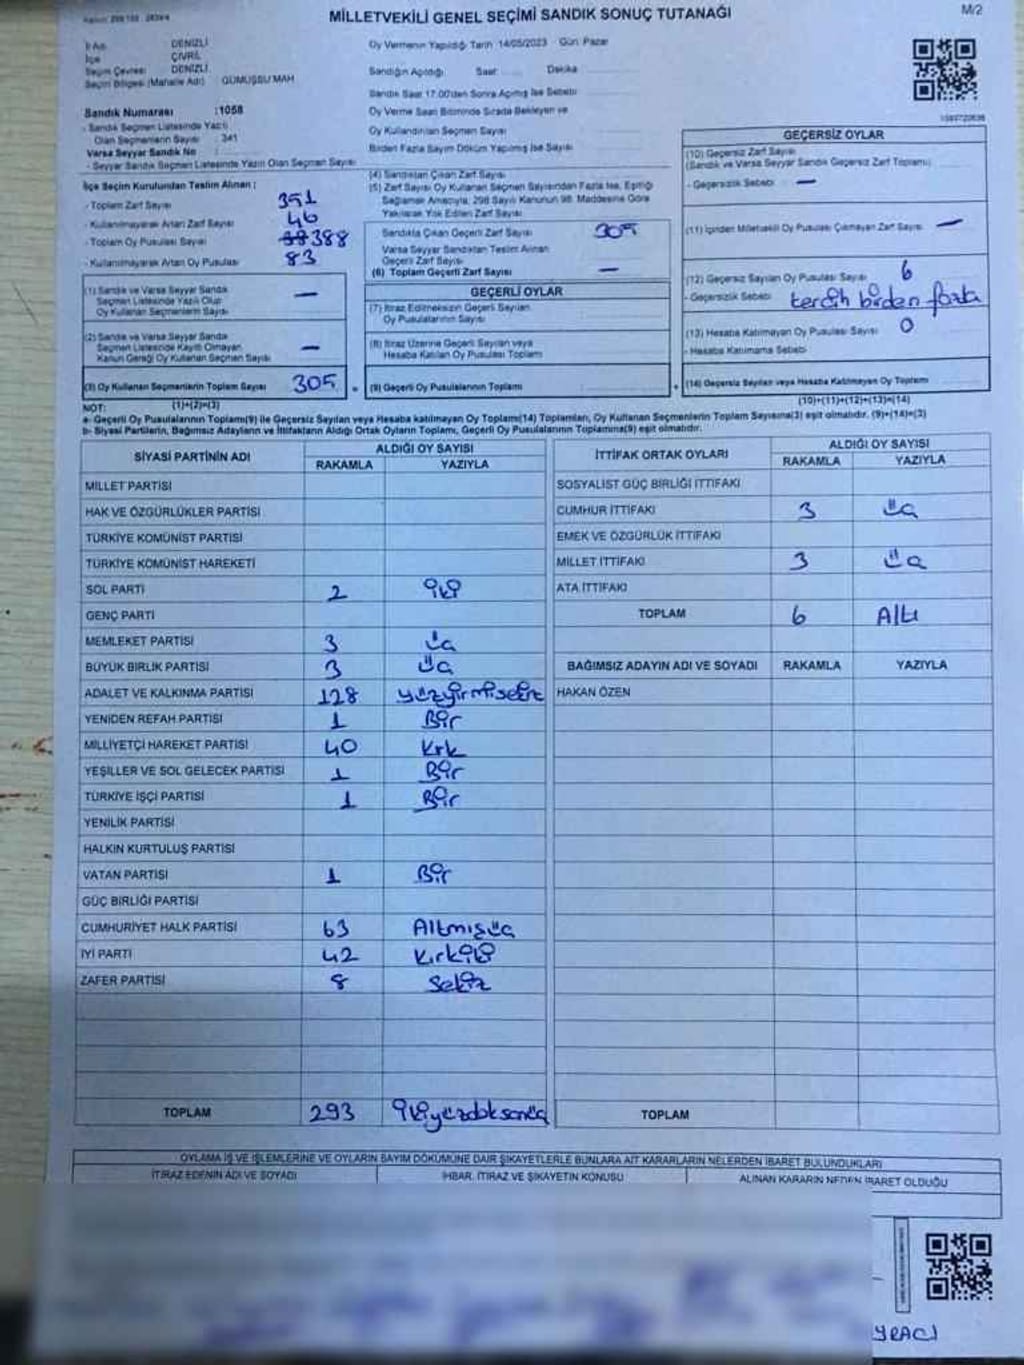 MİLLETVEKİLİ GENEL SEÇİMİ SANDIK SONUÇ TUTANAĞI
M/2
İl Adı DENİZLİ
İlçe ÇİVRİL
Seçim Çevresi DENİZLİ
Seçim Bölgesi (Mahalle Adı) GÜMÜŞSU MAH
Sandık Numarası :1058
- Sandık Seçmen Listesinde Yazılı
Olan Seçmenlerin Sayısı : 341
Varsa Seyyar Sandık No :
- Seyyar Sandık Seçmen Listesinde Yazılı Olan Seçmen Sayısı
İlçe Seçim Kurulundan Teslim Alınan :
- Toplam Zarf Sayısı 351
- Kullanılmayarak Artan Zarf Sayısı 46
- Toplam Oy Pusulası Sayısı 388
- Kullanılmayarak Artan Oy Pusulası 83
(1) Sandık ve Varsa Seyyar Sandık
Seçmen Listesinde Yazılı Olup
Oy Kullanan Seçmenlerin Sayısı —
(2) Sandık ve Varsa Seyyar Sandık
Seçmen Listesinde Kayıtlı Olmayan
Kanun Gereği Oy Kullanan Seçmen Sayısı —
(3) Oy Kullanan Seçmenlerin Toplam Sayısı 305
(1)+(2)=(3)
Oy Vermenin Yapıldığı Tarih 14/05/2023 Gün: Pazar
Sandığın Açıldığı Saat Dakika
Sandık Saat 17.00'den Sonra Açılmış İse Sebebi
Oy Verme Saati Bitiminde Sırada Bekleyen ve
Oy Kullandırılan Seçmen Sayısı
Birden Fazla Sayım Döküm Yapılmış İse Sayısı
(4) Sandıktan Çıkan Zarf Sayısı
(5) Zarf Sayısı Oy Kullanan Seçmen Sayısından Fazla İse, Eşitliği
Sağlamak Amacıyla, 298 Sayılı Kanunun 98. Maddesine Göre
Yakılarak Yok Edilen Zarf Sayısı
Sandıkta Çıkan Geçerli Zarf Sayısı 305
Varsa Seyyar Sandıktan Teslim Alınan
Geçerli Zarf Sayısı
(6) Toplam Geçerli Zarf Sayısı —
GEÇERLİ OYLAR
(7) İtiraz Edilmeksizin Geçerli Sayılan
Oy Pusulalarının Sayısı
(8) İtiraz Üzerine Geçerli Sayılan veya
Hesaba Katılan Oy Pusulası Toplamı
= (9) Geçerli Oy Pusulalarının Toplamı
GEÇERSİZ OYLAR
(10) Geçersiz Zarf Sayısı
(Sandık ve Varsa Seyyar Sandık Geçersiz Zarf Toplamı)
- Geçersizlik Sebebi —
(11) İçinden Milletvekili Oy Pusulası Çıkmayan Zarf Sayısı —
(12) Geçersiz Sayılan Oy Pusulası Sayısı 6
- Geçersizlik Sebebi tercih birden fazla
(13) Hesaba Katılmayan Oy Pusulası Sayısı 0
- Hesaba Katılmama Sebebi
+ (14) Geçersiz Sayılan veya Hesaba Katılmayan Oy Toplamı
(10)+(11)+(12)+(13)=(14)
NOT:
a- Geçerli Oy Pusulalarının Toplamı(9) ile Geçersiz Sayılan veya Hesaba katılmayan Oy Toplamı(14) Toplamları, Oy Kullanan Seçmenlerin Toplam Sayısına(3) eşit olmalıdır. (9)+(14)=(3)
b- Siyasi Partilerin, Bağımsız Adayların ve İttifakların Aldığı Ortak Oyların Toplamı, Geçerli Oy Pusulalarının Toplamına(9) eşit olmalıdır.
SİYASİ PARTİNİN ADI ALDIĞI OY SAYISI
RAKAMLA YAZIYLA
MİLLET PARTİSİ
HAK VE ÖZGÜRLÜKLER PARTİSİ
TÜRKİYE KOMÜNİST PARTİSİ
TÜRKİYE KOMÜNİST HAREKETİ
SOL PARTİ 2 iki
GENÇ PARTİ
MEMLEKET PARTİSİ 3 üç
BÜYÜK BİRLİK PARTİSİ 3 üç
ADALET VE KALKINMA PARTİSİ 128 yüzyirmisekiz
YENİDEN REFAH PARTİSİ 1 Bir
MİLLİYETÇİ HAREKET PARTİSİ 40 Kırk
YEŞİLLER VE SOL GELECEK PARTİSİ 1 Bir
TÜRKİYE İŞÇİ PARTİSİ 1 Bir
YENİLİK PARTİSİ
HALKIN KURTULUŞ PARTİSİ
VATAN PARTİSİ 1 Bir
GÜÇ BİRLİĞİ PARTİSİ
CUMHURİYET HALK PARTİSİ 63 Altmışüç
İYİ PARTİ 42 Kırkiki
ZAFER PARTİSİ 8 Sekiz
TOPLAM 293 ikiyüzdoksanüç
İTTİFAK ORTAK OYLARI ALDIĞI OY SAYISI
RAKAMLA YAZIYLA
SOSYALİST GÜÇ BİRLİĞİ İTTİFAKI
CUMHUR İTTİFAKI 3 üç
EMEK VE ÖZGÜRLÜK İTTİFAKI
MİLLET İTTİFAKI 3 üç
ATA İTTİFAKI
TOPLAM 6 Altı
BAĞIMSIZ ADAYIN ADI VE SOYADI RAKAMLA YAZIYLA
HAKAN ÖZEN
TOPLAM
OYLAMA İŞ VE İŞLEMLERİNE VE OYLARIN SAYIM DÖKÜMÜNE DAİR ŞİKAYETLERLE BUNLARA AİT KARARLARIN NELERDEN İBARET BULUNDUKLARI
İTİRAZ EDENİN ADI VE SOYADI İHBAR, İTİRAZ VE ŞİKAYETİN KONUSU ALINAN KARARIN NEDEN İBARET OLDUĞU
YRACI